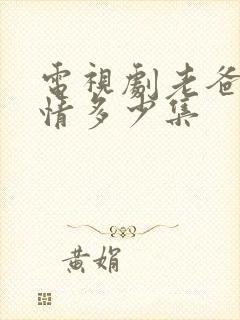 電視劇老爸
情多少集
黃娟